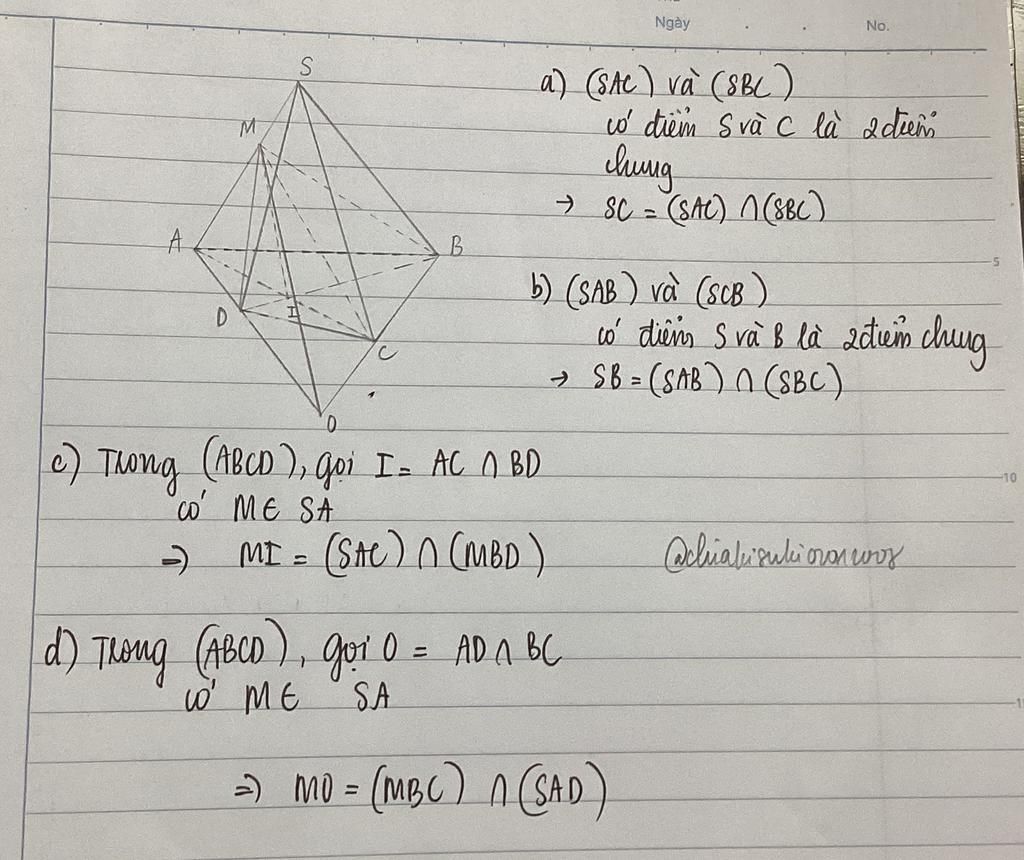 Ngày
No.
S
M
A
B
D
I
C
O
a) (SAC) và (SBC)
có điểm S và C là 2 điểm
chung
→ SC = (SAC) ∩ (SBC)
5
b) (SAB) và (SCB)
có điểm S và B là 2 điểm chung
→ SB = (SAB) ∩ (SBC)
c) Trong (ABCD), gọi I = AC ∩ BD
10
có M ∈ SA
⇒ MI = (SAC) ∩ (MBD)
d) Trong (ABCD), gọi O = AD ∩ BC
có M ∈ SA
⇒ MO = (MBC) ∩ (SAD)